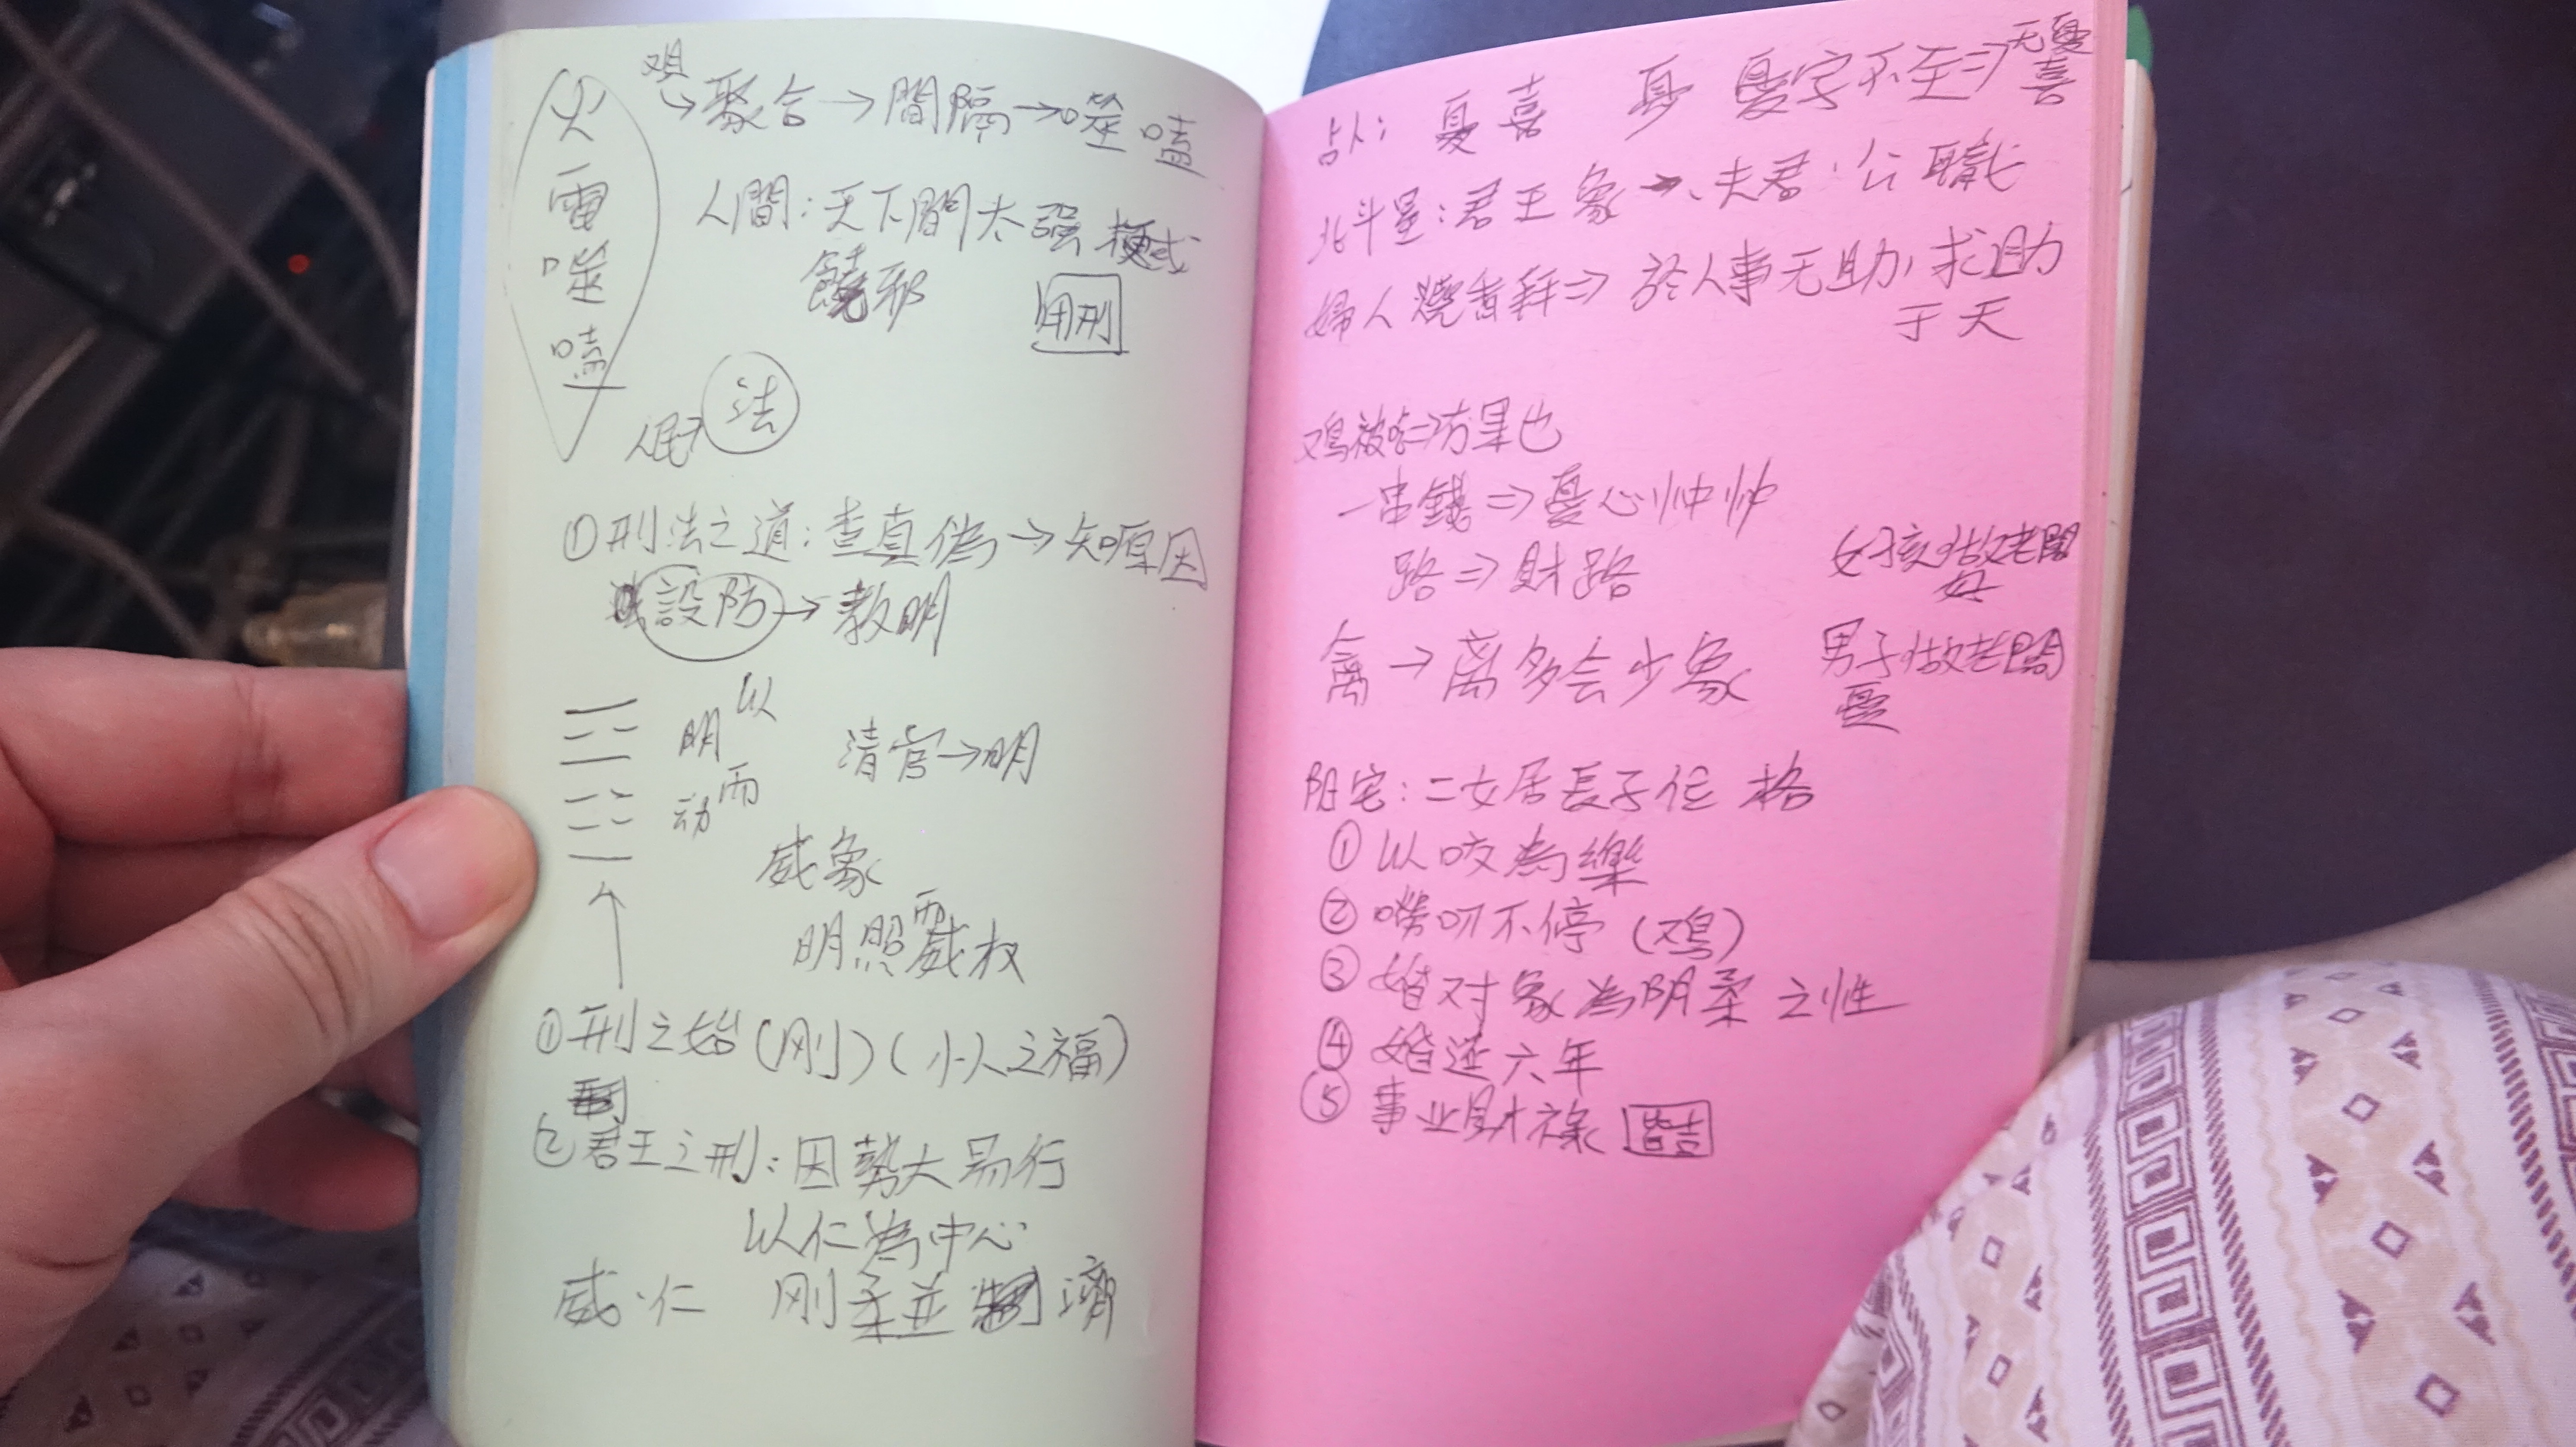 火雷噬嗑
观
聚合→間隔→噬嗑
人間:天下間太强梗或
饒邪
用刑
人民 法
①刑法之道:查真偽→知原因
設防→教明
以
明 清官→明
而
动
威象
而
明照威权
①刑之始(刚)(小人之福)
②君王之刑:因勢大易行
以仁為中心
威·仁 刚柔並濟
占人: 憂喜 憂字不至⇒无憂喜
北斗星:君王象→夫君·公職
婦人燒香拜⇒於人事无助,求助
于天
一串錢⇒憂心忡忡
路⇒財路
女孩做老闆
好
禽→离多会少象
男子做老闆
憂
阳宅:二女居長子位 格
①以咬為樂
②嘮叨不停(鸡)
③婚对象為阴柔之性
④婚迟六年
⑤事业財祿 皆吉